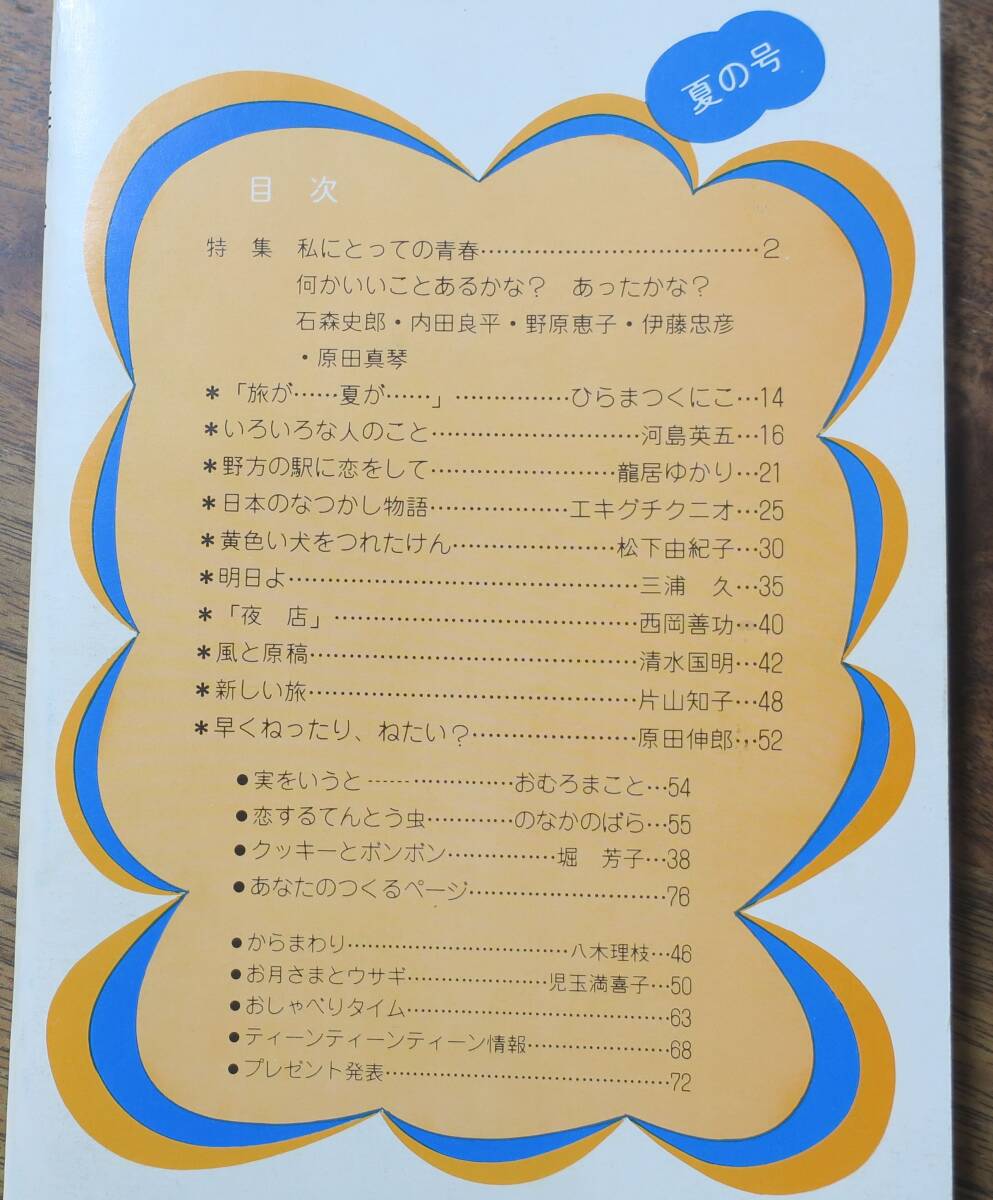 夏の号
目次
特集 私にとっての青春……………………………2
何かいいことあるかな? あったかな?
石森史郎・内田良平・野原恵子・伊藤忠彦
・原田真琴
*「旅が……夏が……」……………ひらまつくにこ…14
*いろいろな人のこと……………………河島英五…16
*野方の駅に恋をして…………………龍居ゆかり…21
*日本のなつかし物語……………エキグチクニオ…25
*黄色い犬をつれたけん………………松下由紀子…30
*明日よ……………………………………三浦 久…35
*「夜 店」………………………………西岡善功…40
*風と原稿…………………………………清水国明…42
*新しい旅…………………………………片山知子…48
*早くねったり、ねたい?………………原田伸郎…52
●実をいうと………………おむろまこと…54
●恋するてんとう虫…………のなかのばら…55
●クッキーとボンボン…………堀 芳子…38
●あなたのつくるページ……………………76
●からまわり………………………八木理枝…46
●お月さまとウサギ……………児玉満喜子…50
●おしゃべりタイム…………………………63
●ティーンティーンティーン情報……………68
●プレゼント発表……………………………72